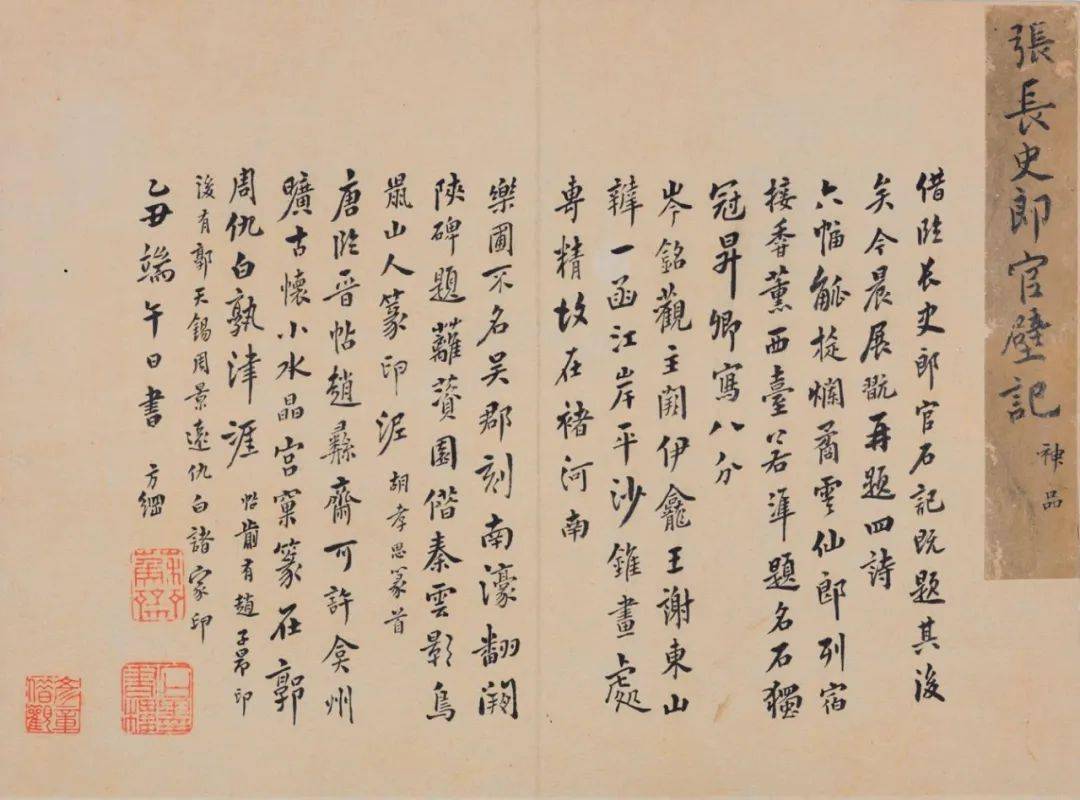 張長史郎官壁記
神品
借臨長史郎官石記既題其後
矣今晨展翫再題四詩
六幅觚棱爛矞雲仙郎列宿
接香薰西臺若準題名石獨
冠昇卿寫八分
岑銘觀主闕伊龕王謝東山
辯一函江岸平沙錐畫處
專精故在褚河南
樂圃不名吳郡刻南濠翻闕
陝碑題蘺薋園偕秦雲影烏
鼠山人篆印泥 胡孝思篆首
唐臨晉帖趙彝齋可許弇州
曠古懷小水晶宮窠篆在郭
周仇白孰津涯 帖前有趙子昂印
後有郭天錫周景遠仇白諸家印
乙丑端午日書 方綱